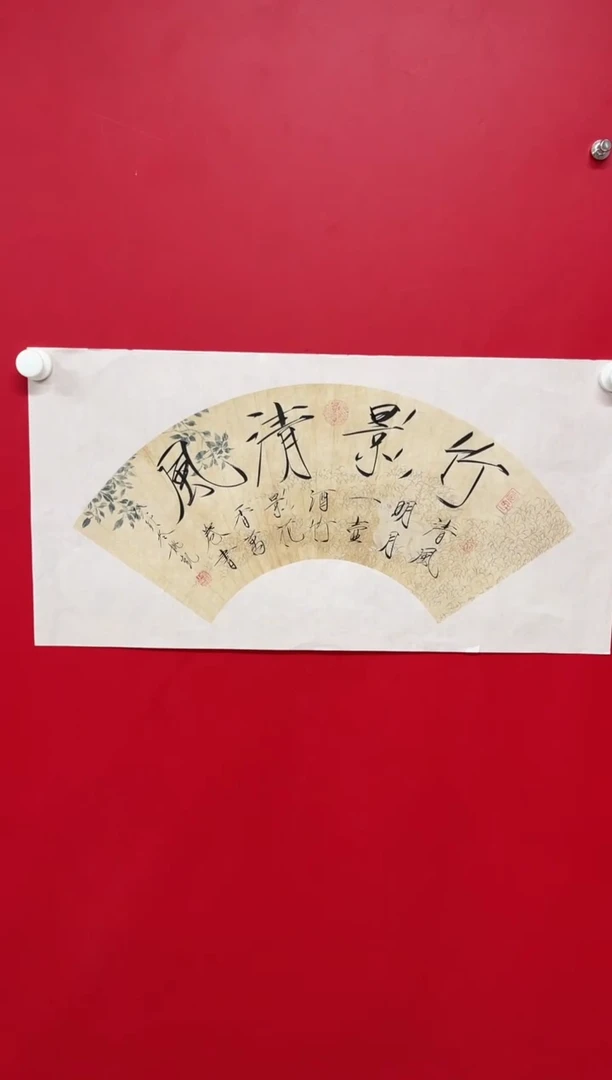 竹影清風
清風
明月
一壺
酒竹
影花
香萬
卷書